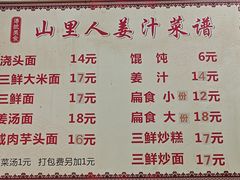 传统美食
山里人姜汁菜谱
浇头面 14元
三鲜大米面 17元
三鲜面 17元
姜汤面 18元
咸肉芋头面 16元
馄饨 6元
姜汁 14元
扁食小份 12元
扁食大份 18元
三鲜炒糕 17元
三鲜炒面 17元
菜汤1元 打包费另加1元